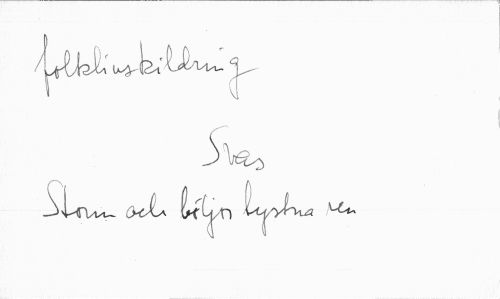 folklivsskildring
Svas
Storm och böljor tystna ren